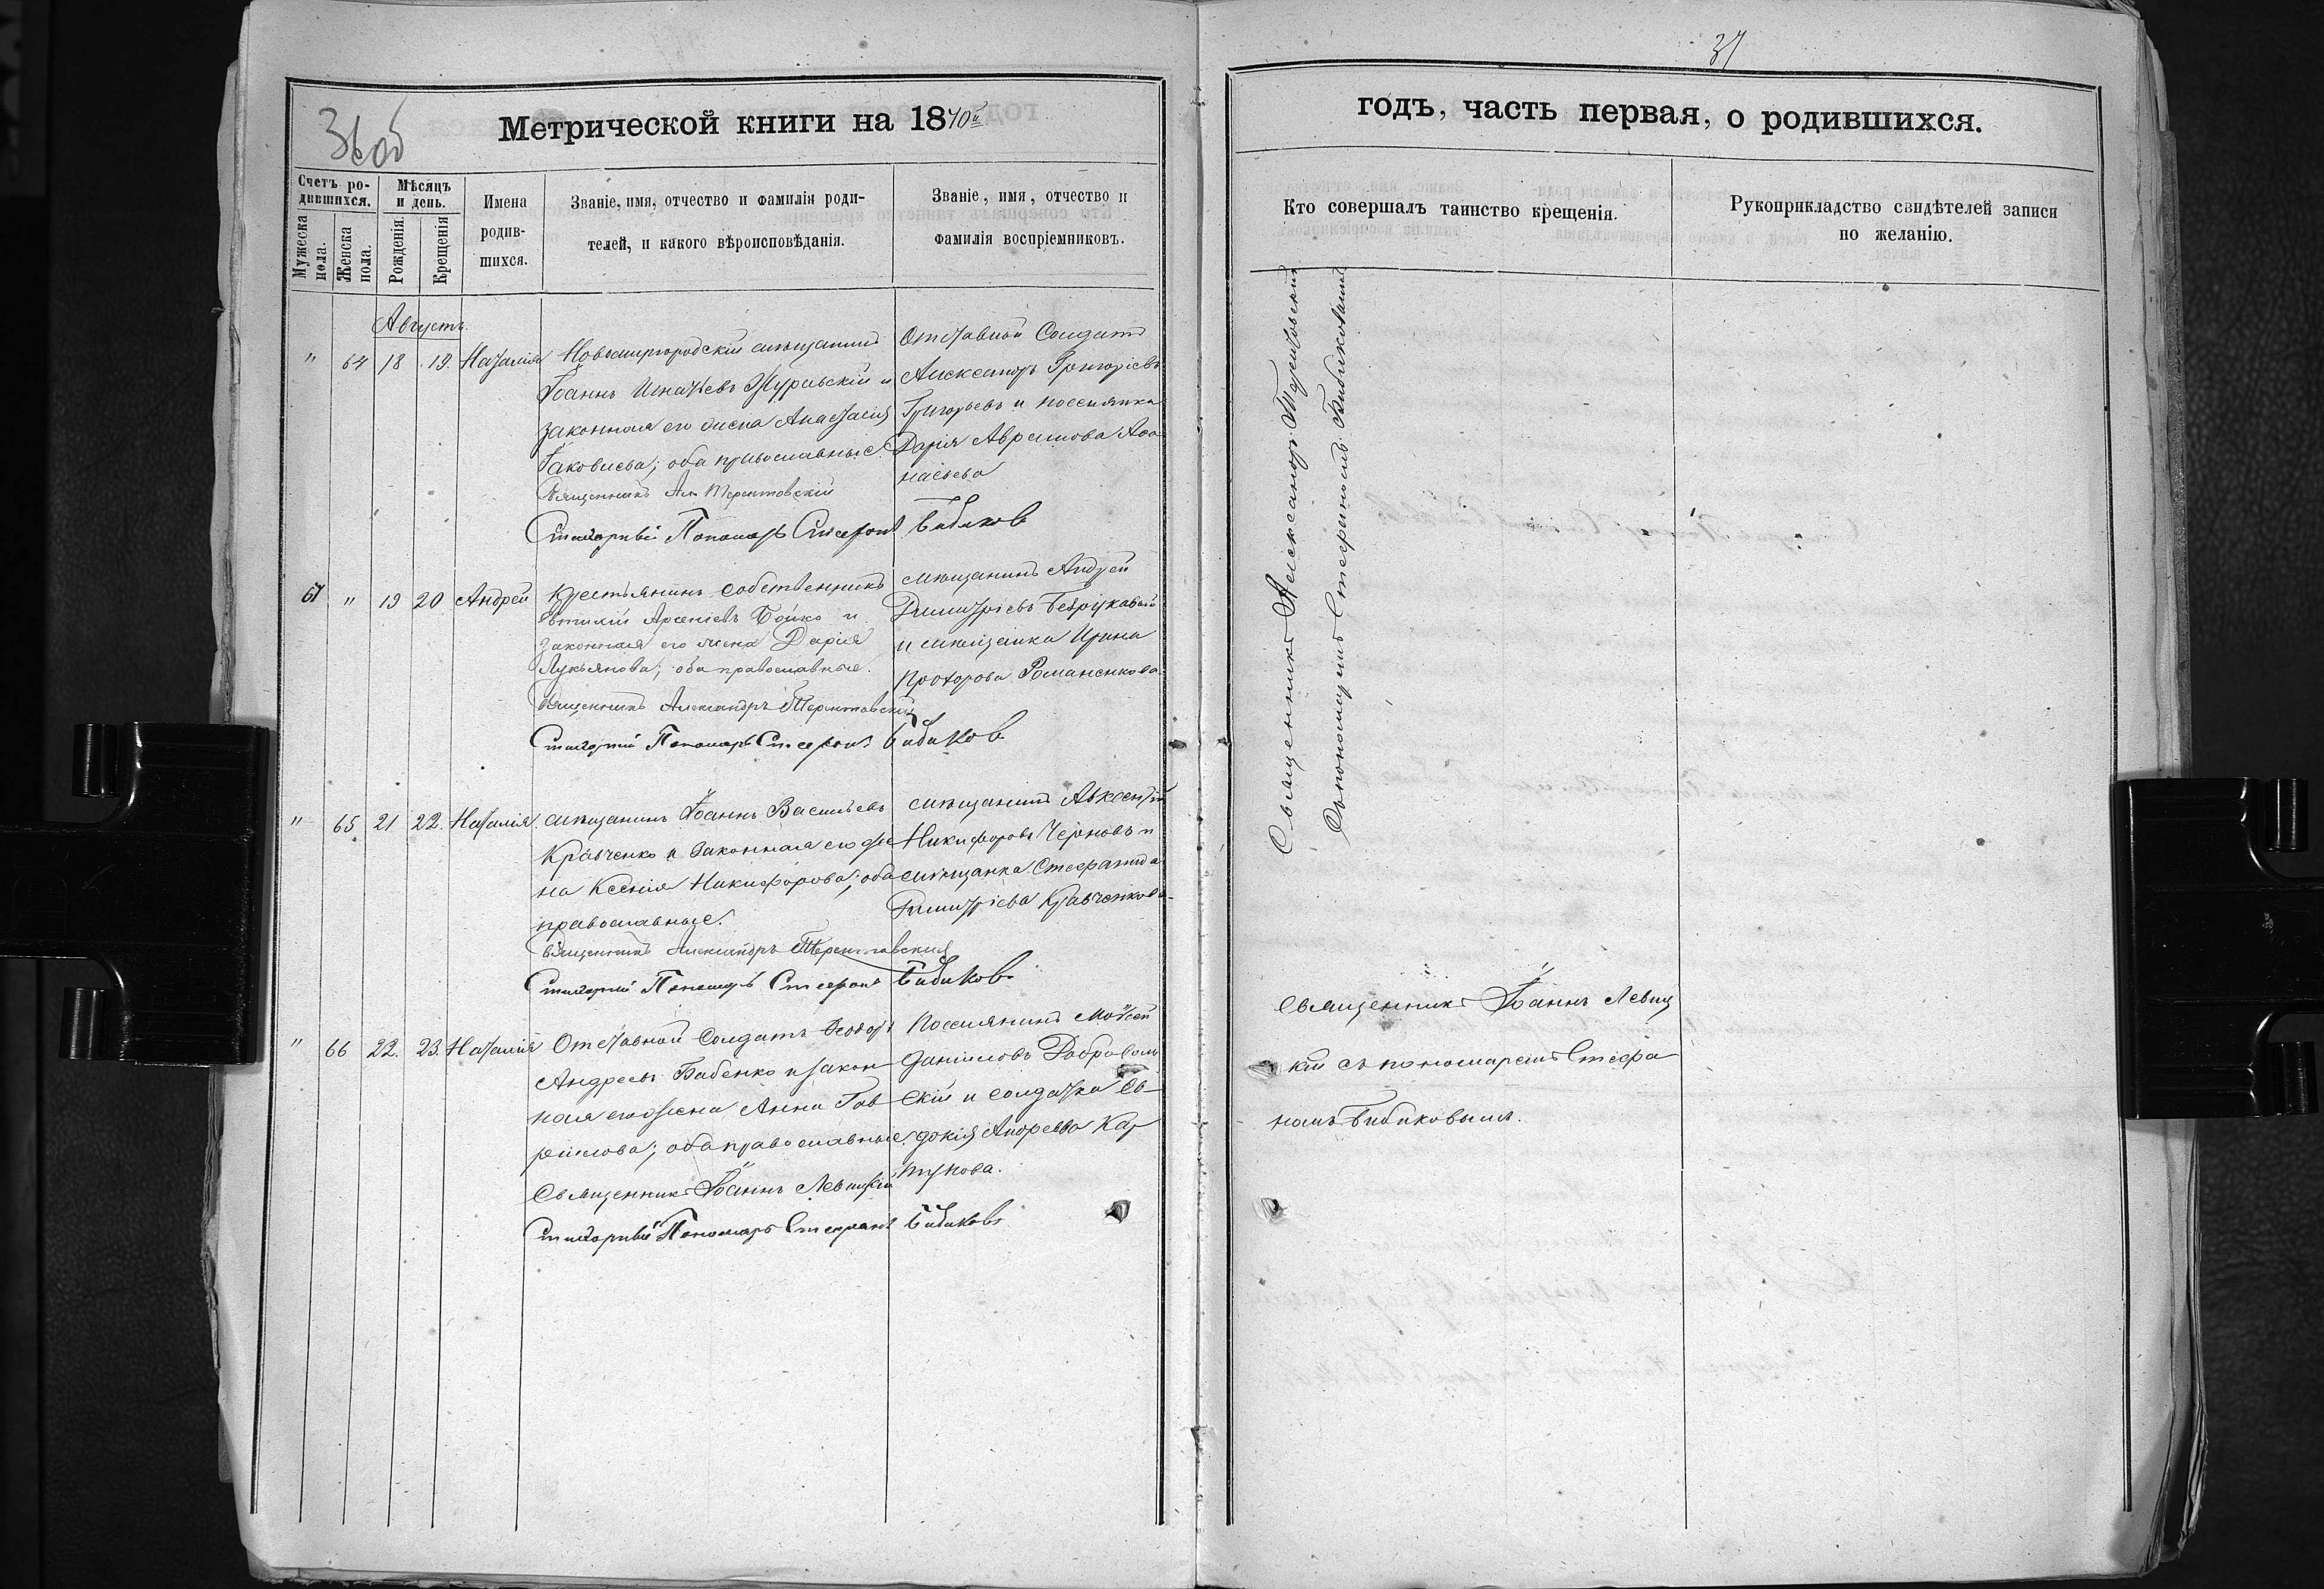 36 об
Метрической книги на 1870й
Счетъ ро-
дившихся.
Мѣсяцъ
и день.
Мужеска
пола.
Женска
пола.
Рожденія.
Крещенія
Имена
родив-
шихся.
Званіе, имя, отчество и фамилія роди-
телей, и какого вѣроисповѣданія.
Званіе, имя, отчество и
фамилія воспріемниковъ.
Августъ.
" 64 18 19. Наталія
Новомиргородскій мѣщанинъ
Іоаннъ Игнатьевъ Журавскій и
законная его жена Анастасія
Іаковлева; оба православные.
Священникъ Ал. Терентовскій
Стихарный Пономарь Стефанъ Бибиков
Отставной Солдатъ
Александръ Григоріевъ
Григорьевъ и поселянка
Дарія Аврамова Афа
насьева
67 " 19 20 Андрей
Крестьянинъ собственникъ
Евтихій Арсеніевъ Бойко и
законная его жена Дарія
Лукьянова; оба православные.
Священникъ Александръ Терентовскій
Стихарный Пономарь Стефанъ Бибиков
мѣщанинъ Андрей
Димитріевъ Безрукавый
и мѣщанка Ирина
Прохорова Романенкова
" 65 21 22. Наталія.
мѣщанинъ Іоаннъ Васильевъ
Кравченко и законная его же
на Ксенія Никифорова; оба
православные.
Священникъ Александръ Терентовскій
Стихарный Пономарь Стефанъ Бибиков.
мѣщанинъ Авксентій
Никифоровъ Черновъ и
мѣщанка Стефанида
Димитріева Кравченкова.
" 66 22. 23. Наталія
Отставной Солдатъ Феодоръ
Андреевъ Бабенко и закон
ная его жена Анна Гав
риилова; оба православные.
Священникъ Іоаннъ Левицкій
Стихарный Пономарь Стефанъ Бибиковъ
Поселянинъ Моѵсей
Даніиловъ Доброволь
скій и солдатка Ев
докія Андреева Кар
пукова.
37
годъ, часть первая, о родившихся.
Кто совершалъ таинство крещенія.
Рукоприкладство свидѣтелей записи
по желанію.
Священникъ Александръ Терентовскій
съ пономаремъ Стефаномъ Бибиковымъ
Священникъ Іоаннъ Левиц
кій съ пономаремъ Стефа
номъ Бибиковымъ.